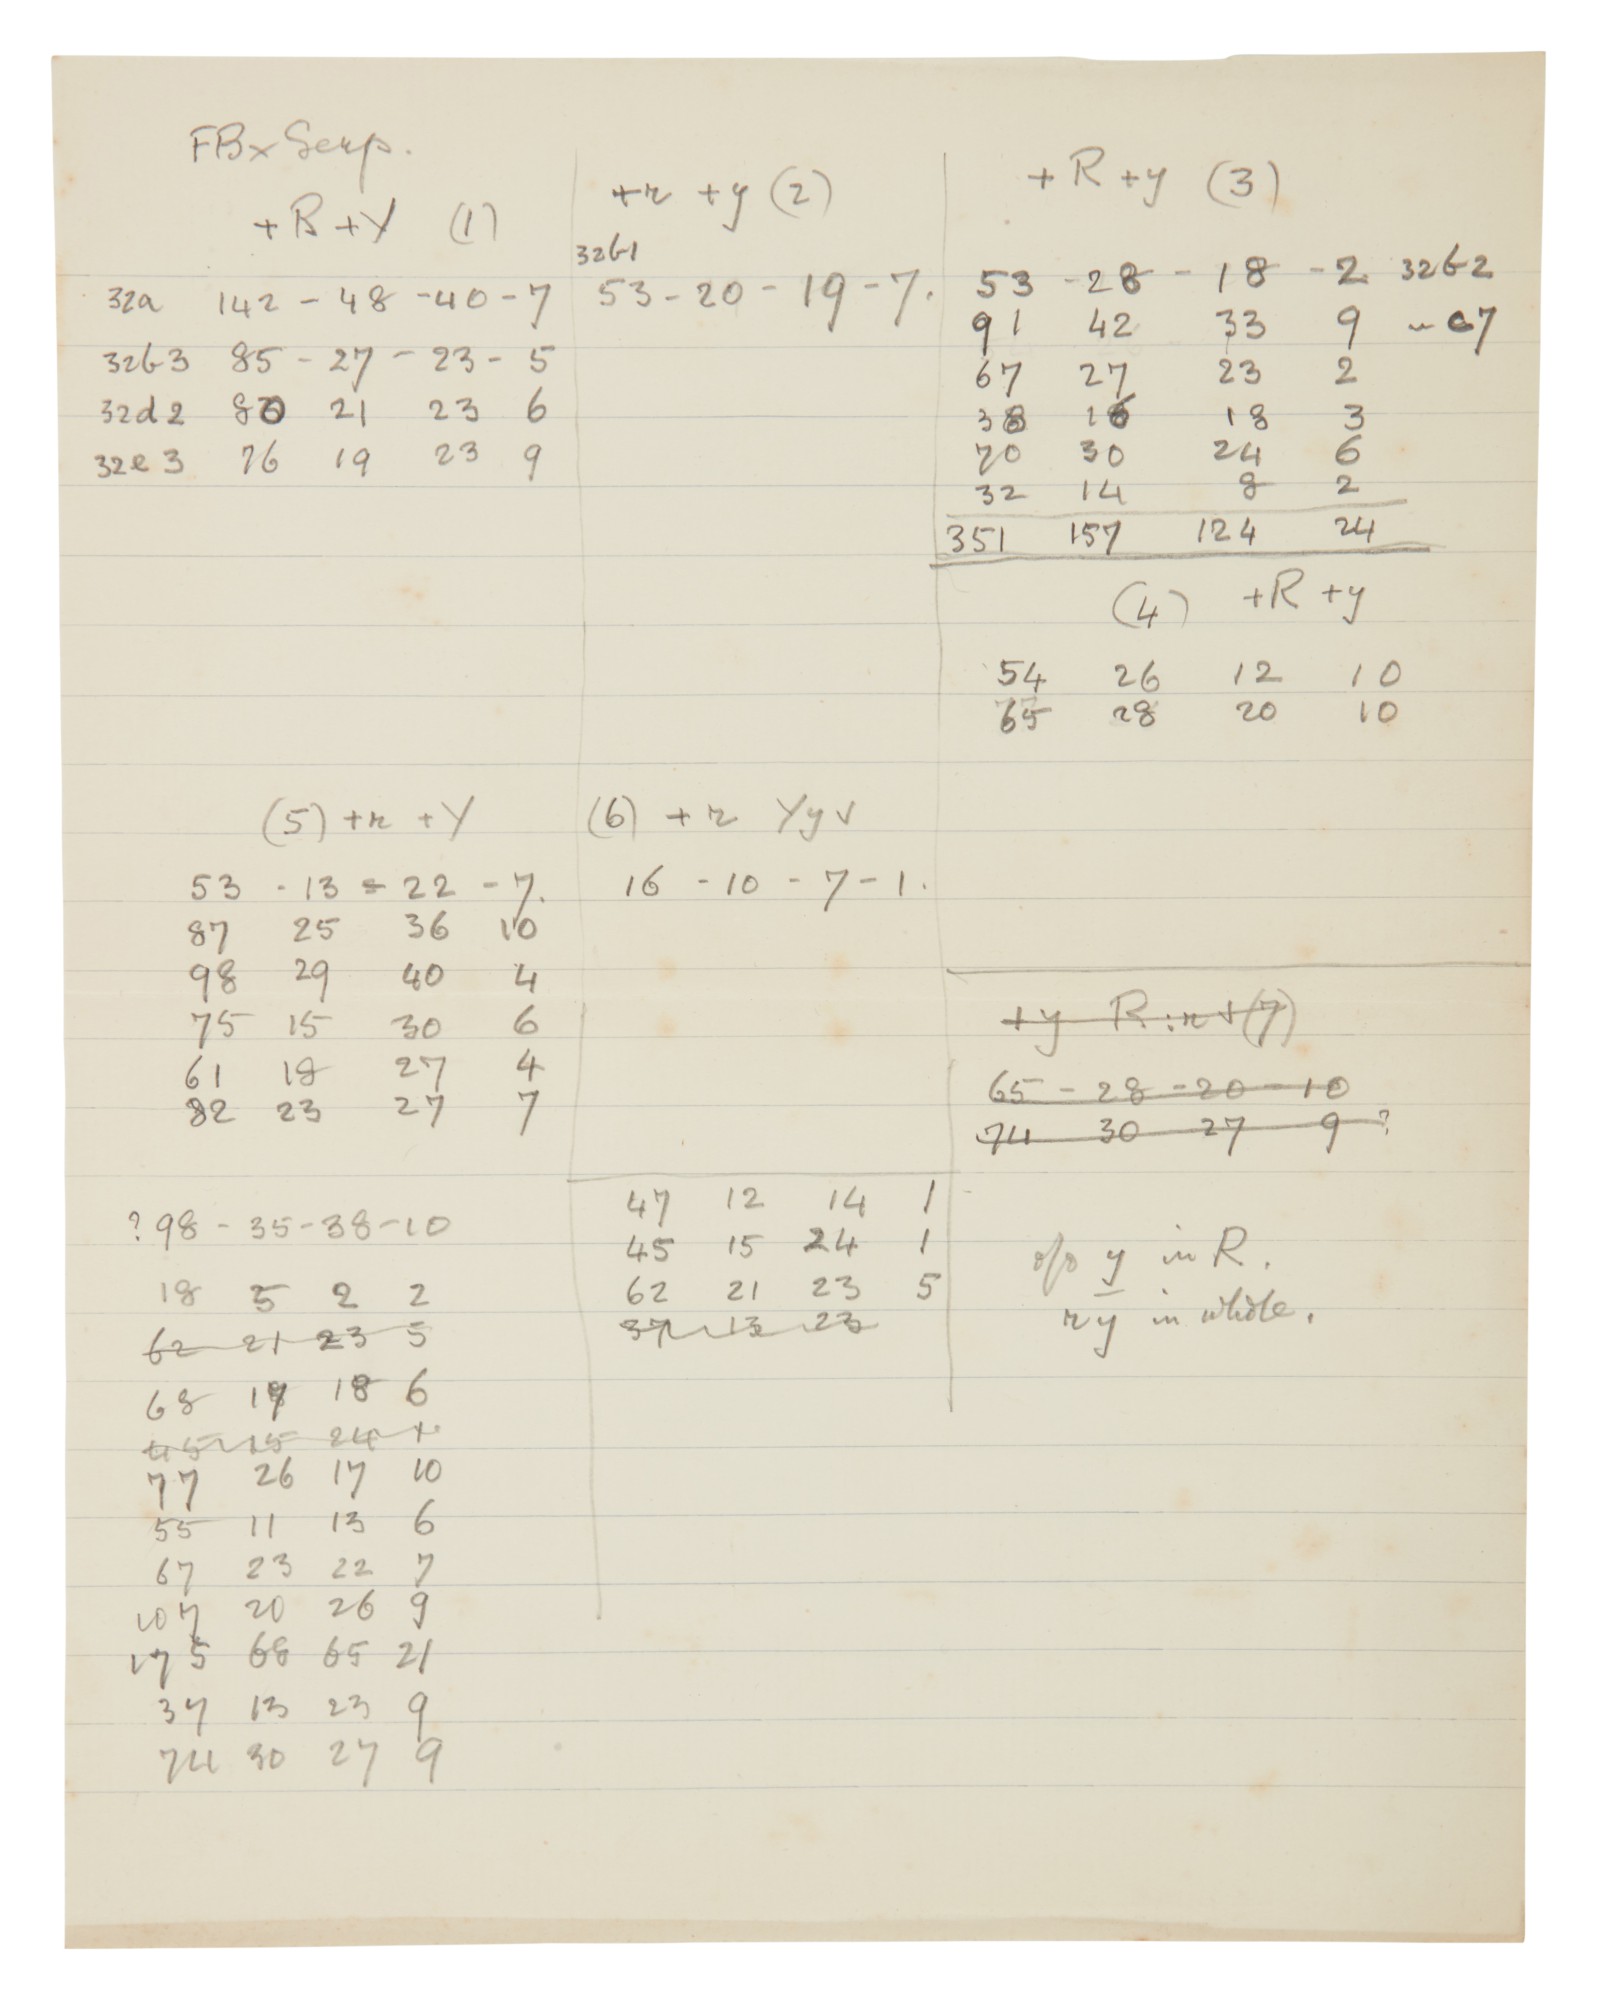 FB x Serp.
+R +Y (1)
32a 142 - 48 - 40 - 7
32b3 85 - 27 - 23 - 5
32d2 80 21 23 6
32e3 76 19 23 9
+r +y (2)
32b1
53 - 20 - 19 - 7.
+R +y (3)
53 - 28 - 18 - 2 32b2
91 42 33 9 " c7
67 27 23 2
38 16 18 3
70 30 24 6
32 14 8 2
351 157 124 24
(4) +R +y
54 26 12 10
65 28 20 10
(5) +r +Y
53 - 13 - 22 - 7.
87 25 36 10
98 29 40 4
75 15 30 6
61 18 27 4
82 23 27 7
(6) +r Yy√
16 - 10 - 7 - 1.
+y R:r + (7)
65 - 28 - 20 - 10
74 30 27 9 ?
? 98 - 35 - 38 - 10
18 5 2 2
62 21 23 5
68 19 18 6
45 15 24 1
77 26 17 10
55 11 13 6
67 23 22 7
107 20 26 9
175 68 65 21
37 13 23 9
74 30 27 9
47 12 14 1
45 15 24 1
62 21 23 5
37 13 23
o/o y in R.
ry in whole.